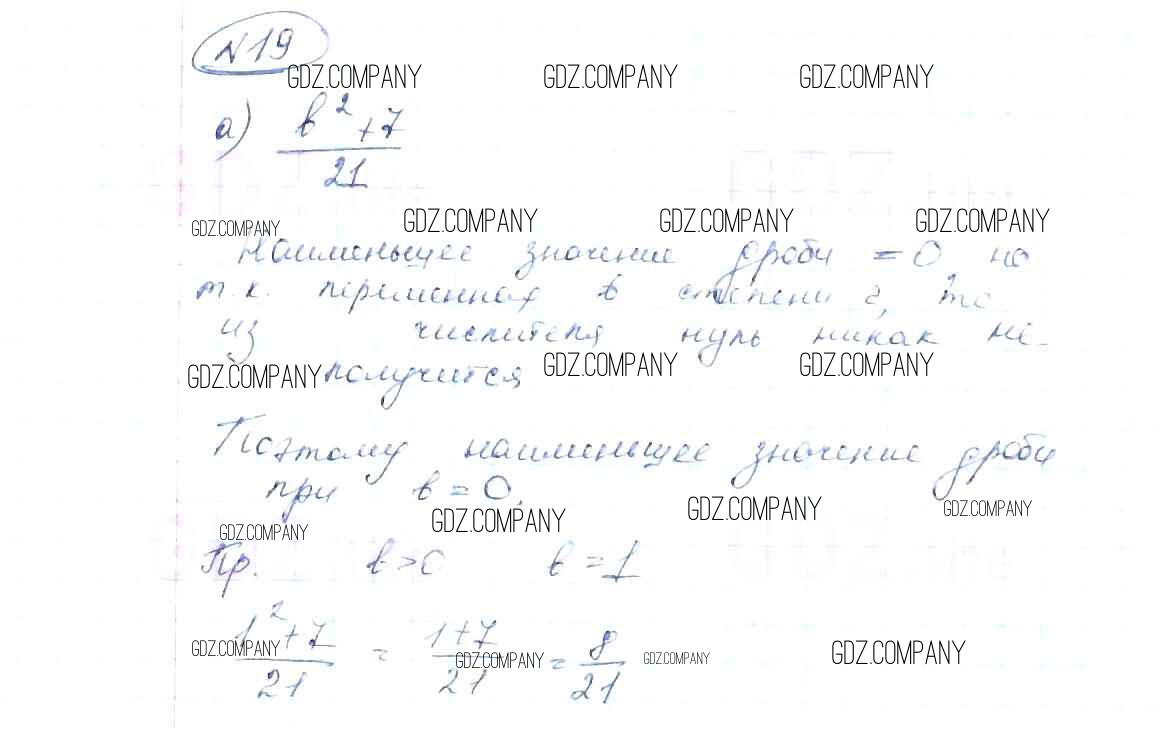 N19
GDZ.COMPANY GDZ.COMPANY GDZ.COMPANY
а) b²+7
21
GDZ.COMPANY GDZ.COMPANY GDZ.COMPANY GDZ.COMPANY
Наименьшее значение дроби = 0 но
т.к. переменная b степени 2, то
из числителя нуль никак не
GDZ.COMPANY получится GDZ.COMPANY GDZ.COMPANY
Поэтому наименьшее значение дроби
при b = 0.
GDZ.COMPANY GDZ.COMPANY GDZ.COMPANY GDZ.COMPANY
Пр. b>0 b=1
1²+7 = 1+7 = 8
21 21 21
GDZ.COMPANY GDZ.COMPANY GDZ.COMPANY GDZ.COMPANY